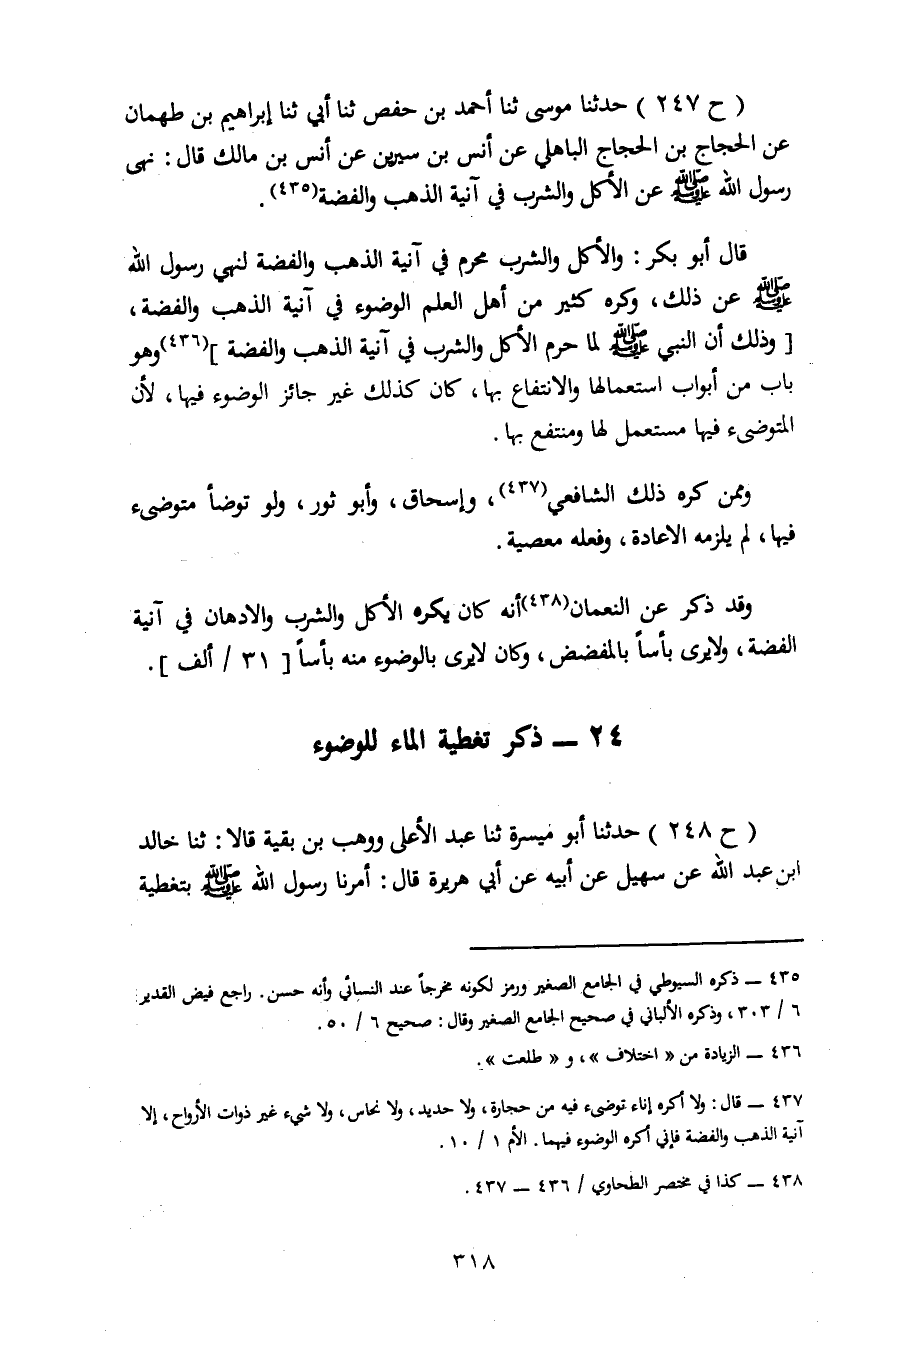 ( ح ٢٤٧ ) حدثنا موسى ثنا أحمد بن حفص ثنا أبي ثنا إبراهيم بن طهمان
عن الحجاج بن الحجاج الباهلي عن أنس بن سيرين عن أنس بن مالك قال : نهى
رسول الله ﷺ عن الأكل والشرب في آنية الذهب والفضة(٤٣٥) .
قال أبو بكر : والأكل والشرب محرم في آنية الذهب والفضة لنهي رسول الله
ﷺ عن ذلك ، وكره كثير من أهل العلم الوضوء في آنية الذهب والفضة ،
[ وذلك أن النبي ﷺ لما حرم الأكل والشرب في آنية الذهب والفضة ](٤٣٦) وهو
باب من أبواب استعمالها والانتفاع بها ، كان كذلك غير جائز الوضوء فيها ، لأن
المتوضىء فيها مستعمل لها ومنتفع بها .
وممن كره ذلك الشافعي(٤٣٧) ، وإسحاق ، وأبو ثور ، ولو توضأ متوضىء
فيها ، لم يلزمه الاعادة ، وفعله معصية .
وقد ذكر عن النعمان(٤٣٨) أنه كان يكره الأكل والشرب والادهان في آنية
الفضة ، ولايرى بأساً بالمفضض ، وكان لايرى بالوضوء منه بأساً [ ٣١ / ألف ] .
٢٤ ــ ذكر تغطية الماء للوضوء
( ح ٢٤٨ ) حدثنا أبو ميسرة ثنا عبد الأعلى ووهب بن بقية قالا : ثنا خالد
ابن عبد الله عن سهيل عن أبيه عن أبي هريرة قال : أمرنا رسول الله ﷺ بتغطية
٤٣٥ ــ ذكره السيوطي في الجامع الصغير ورمز لكونه مخرجاً عند النسائي وأنه حسن . راجع فيض القدير
٦ / ٣٠٣ ، وذكره الألباني في صحيح الجامع الصغير وقال : صحيح ٦ / ٥٠ .
٤٣٦ ــ الزيادة من « اختلاف » ، و « طلعت » .
٤٣٧ ــ قال : ولا أكره إناء توضىء فيه من حجارة ، ولا حديد ، ولا نحاس ، ولا شيء غير ذوات الأرواح ، إلا
آنية الذهب والفضة فإني أكره الوضوء فيهما . الأم ١ / ١٠ .
٤٣٨ ــ كذا في مختصر الطحاوي / ٤٣٦ ــ ٤٣٧ .
٣١٨